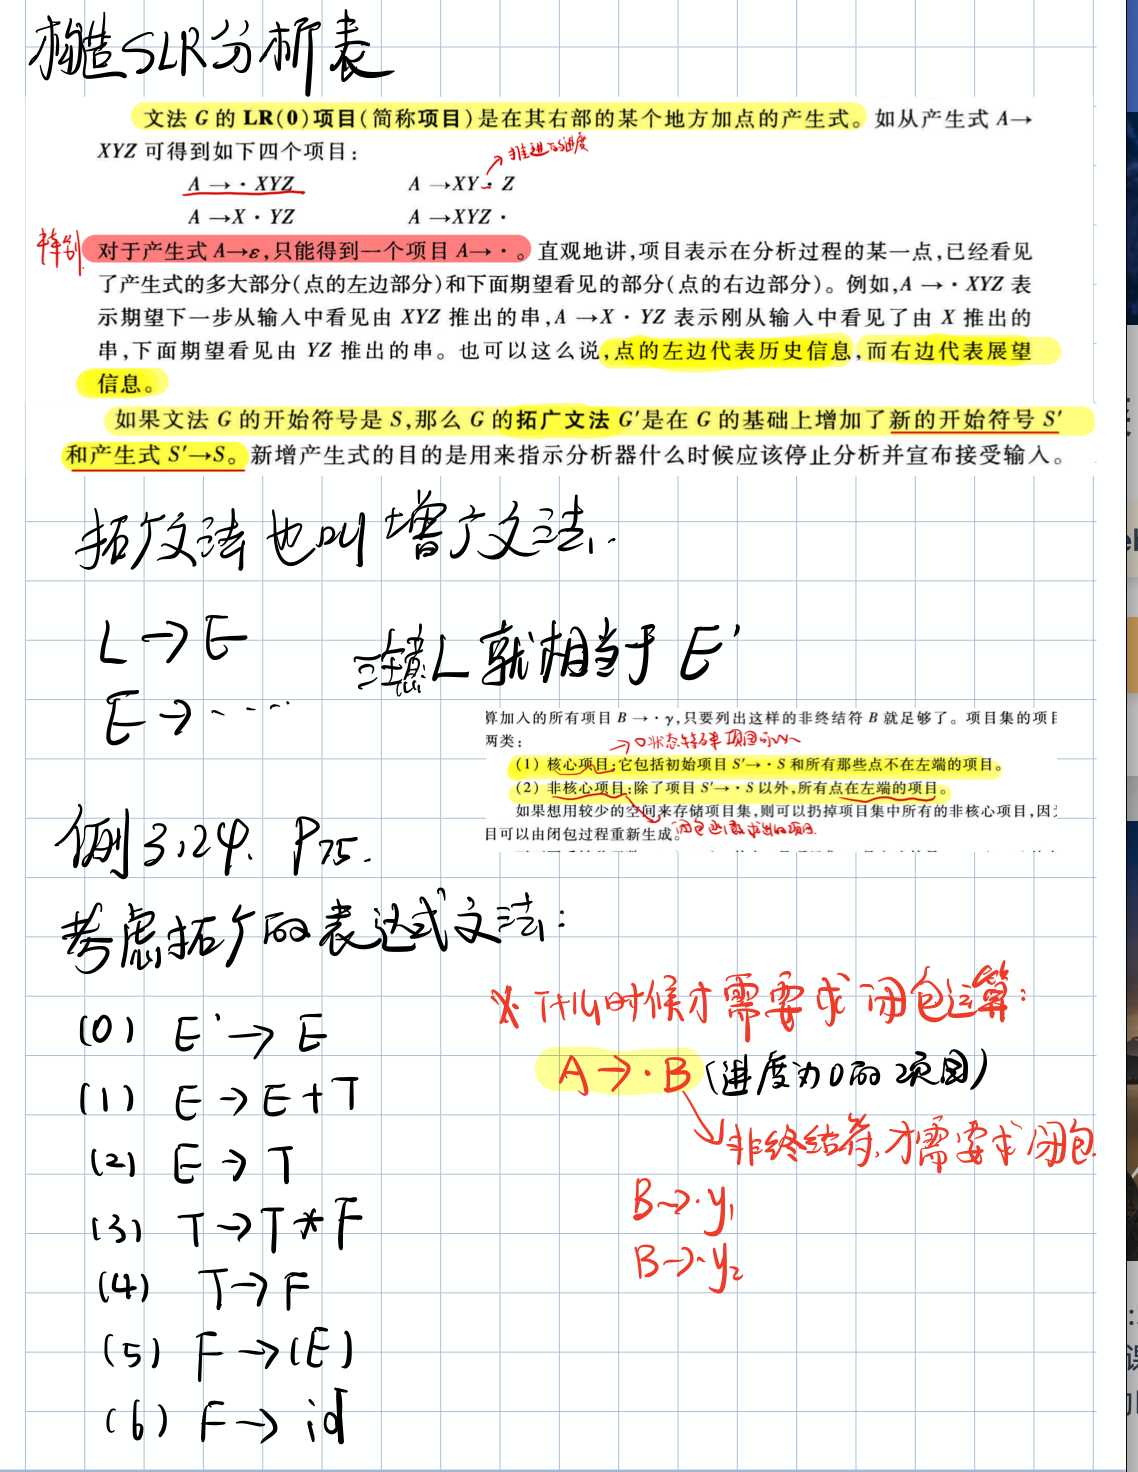 构造SLR分析表
文法 G 的 LR(0)项目(简称项目)是在其右部的某个地方加点的产生式。如从产生式 A→
XYZ 可得到如下四个项目:
推进的进度
A → · XYZ A →XY · Z
A →X · YZ A →XYZ ·
特别
对于产生式 A→ε,只能得到一个项目 A→ · 。直观地讲,项目表示在分析过程的某一点,已经看见
了产生式的多大部分(点的左边部分)和下面期望看见的部分(点的右边部分)。例如,A → · XYZ 表
示期望下一步从输入中看见由 XYZ 推出的串,A →X · YZ 表示刚从输入中看见了由 X 推出的
串,下面期望看见由 YZ 推出的串。也可以这么说,点的左边代表历史信息,而右边代表展望
信息。
如果文法 G 的开始符号是 S,那么 G 的拓广文法 G′是在 G 的基础上增加了新的开始符号 S′
和产生式 S′→S。新增产生式的目的是用来指示分析器什么时候应该停止分析并宣布接受输入。
拓广文法也叫增广文法.
L → E
注意L就相当于 E'
E → ....
算加入的所有项目 B → · γ,只要列出这样的非终结符 B 就足够了。项目集的项目
两类:
(1) 核心项目:它包括初始项目 S′→ · S 和所有那些点不在左端的项目。
(2) 非核心项目:除了项目 S′→ · S 以外,所有点在左端的项目。
如果想用较少的空间来存储项目集,则可以扔掉项目集中所有的非核心项目,因
目可以由闭包过程重新生成。
例3.24. P75.
考虑拓广的表达式文法:
(0) E' → E
(1) E → E + T
(2) E → T
(3) T → T * F
(4) T → F
(5) F → (E)
(6) F → id
※ 什么时候才需要求闭包运算:
A → · B (进度为0的项目)
非终结符,才需要求闭包.
B → · y1
B → · y2